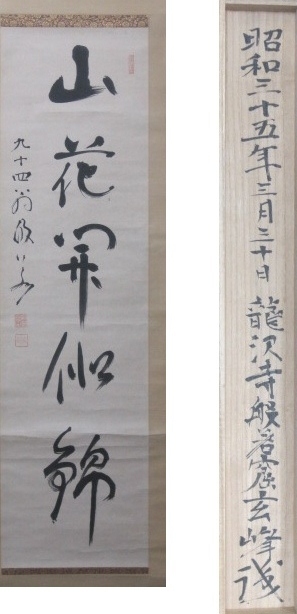 山花開似錦
九十四翁般若
昭和三十五年三月三十日 龍沢寺般若窟玄峰識